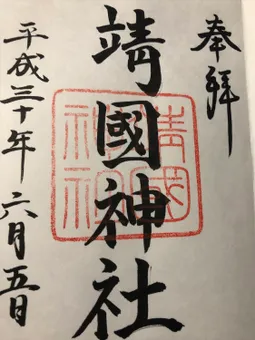 奉拝
靖國神社
靖国神社
平成三十年六月五日